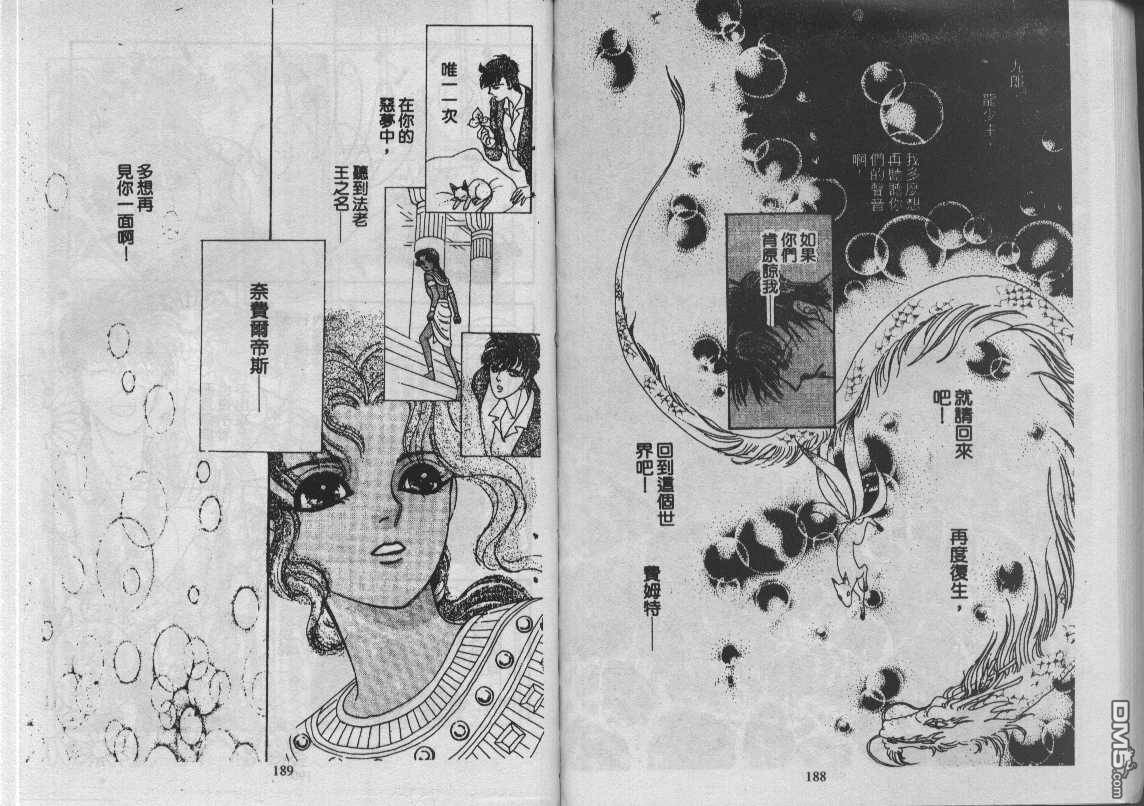 九郎、
龍少主
我多麼想
再聽聽你
們的聲音
啊！
如果
你們
肯原諒我——
就請回來
吧！
再度復生，
回到這個世
界吧！
費姆特——
188
唯一一次
在你的
惡夢中，
聽到法老
王之名——
奈費爾帝斯——
多想再
見你一面啊！
189
DM5
.com